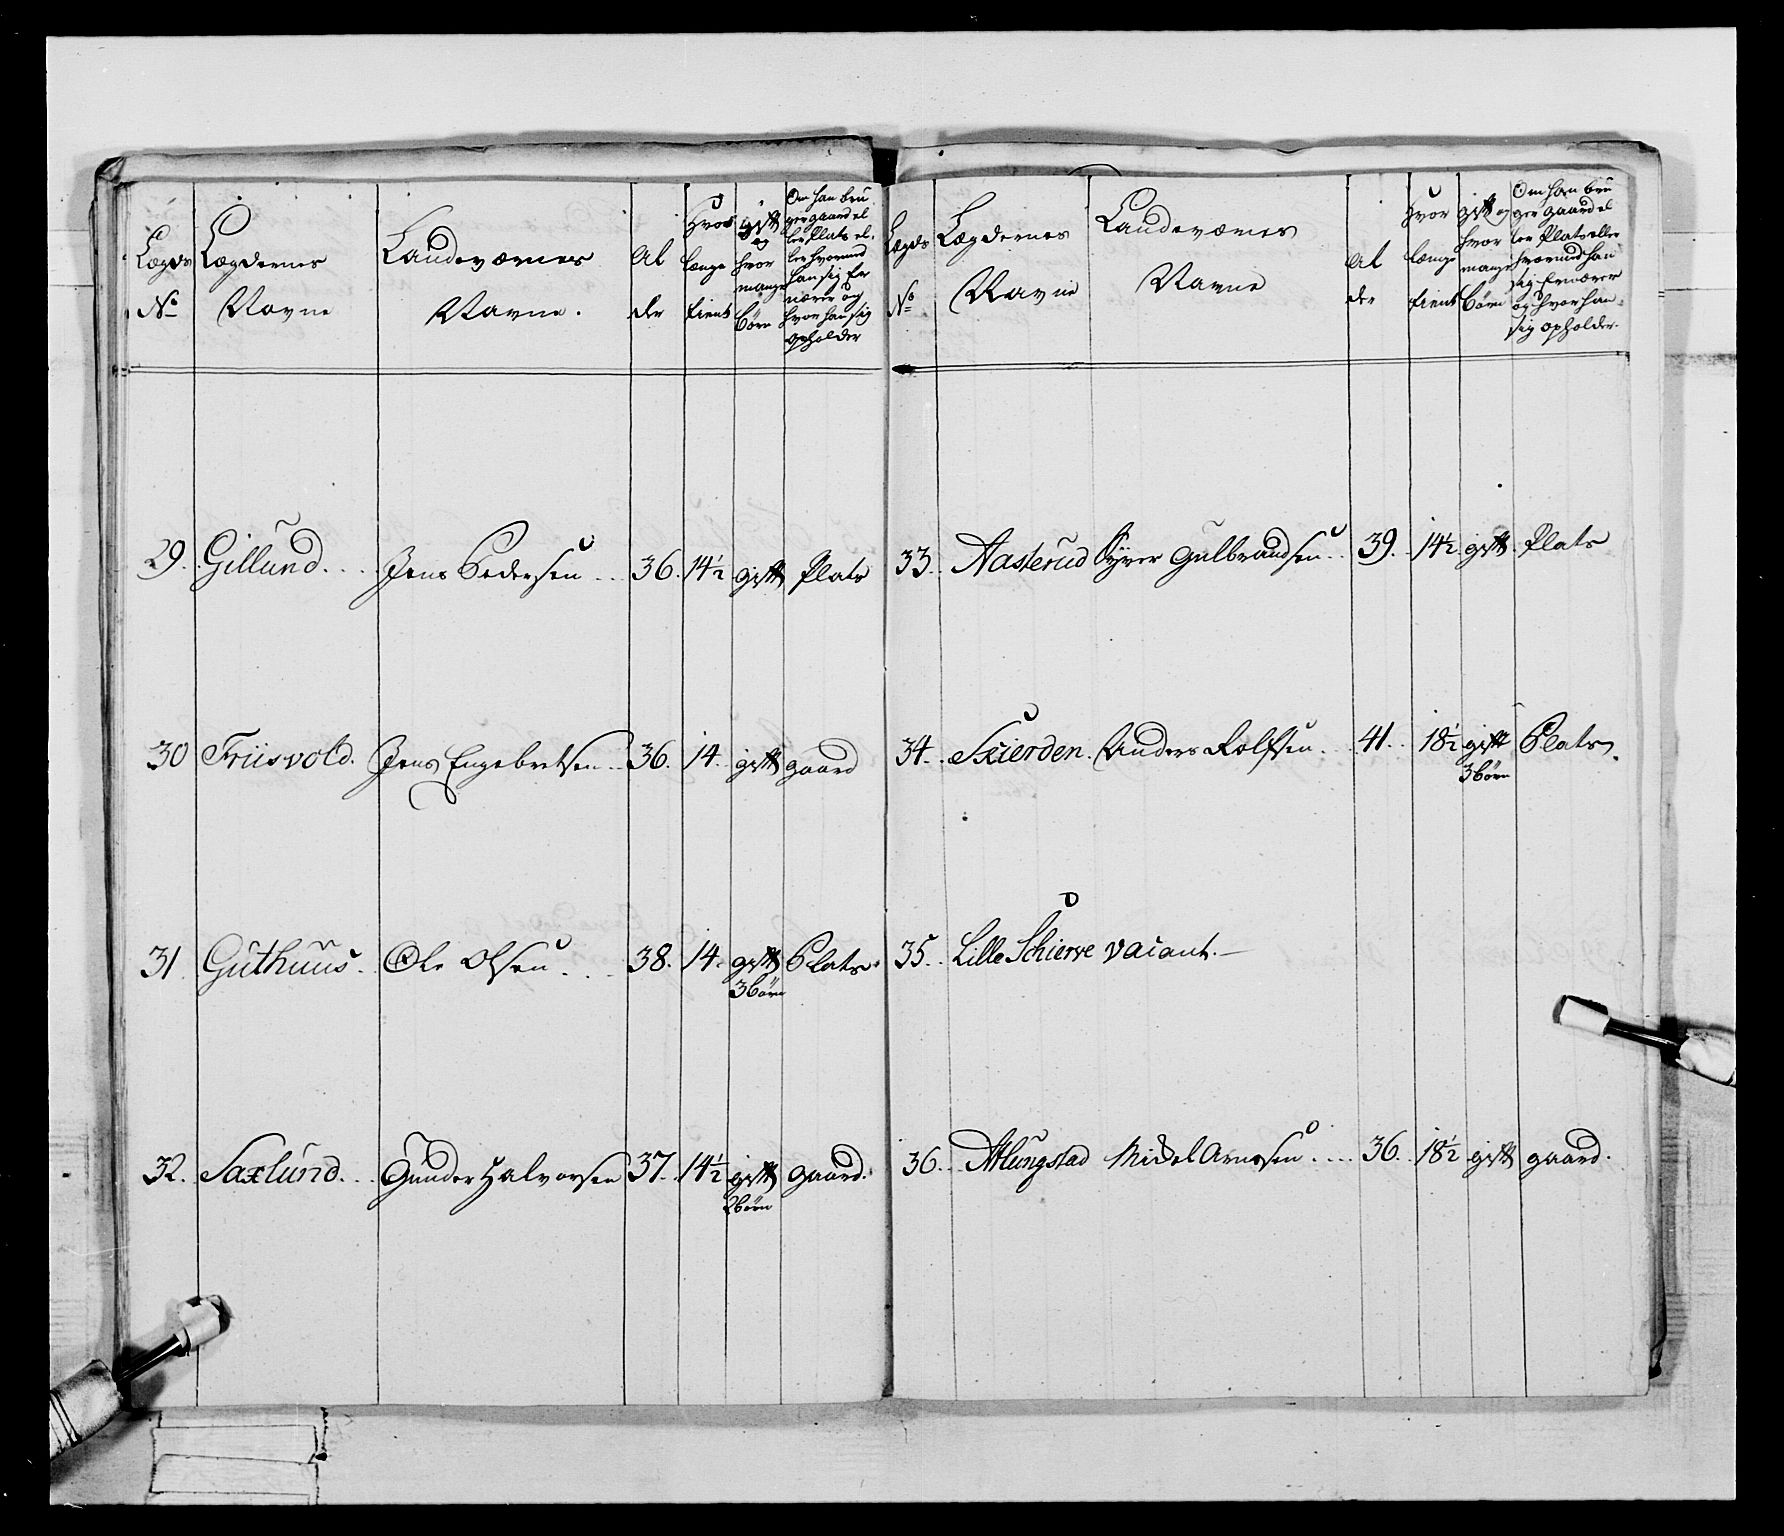 Lægds No
Lægdernes Navne
Landeværnes Navne.
Alder
Hvor længe tient
gift og hvor mange Børn
Om han bruger gaard eller Plats eller hvormed han sig Ernærer og hvor han sig opholder
29. Gillund. . . Jens Pedersen . . 36. 14½ gift Plats
30 Friisvold. Jens Engebretsen . . 36. 14. gift gaard
31. Guthuus. Ole Olsen . . . 38. 14. gift Plats.
3 Børn
32. Saxlund. . . Gunder Halvorsen 37. 14½ gift gaard.
2 Børn
Lægds No
Lægdernes Navne
Landeværnes Navne
Alder
Hvor længe tient
gift og hvor mange Børn
Om han bruger gaard eller Plats eller hvormed han sig Ernærer og hvor han sig opholder.
33. Aasterud Syver Gulbrandsen . . 39. 14½ gift Plats
34. Skierden. Anders Rolfsen . 41. 18½ gift Plats.
3 Børn
35. Lille Schierve vacant.—
36. Atlungstad Mickel Arnesen . . . . 36. 18½ gift gaard.